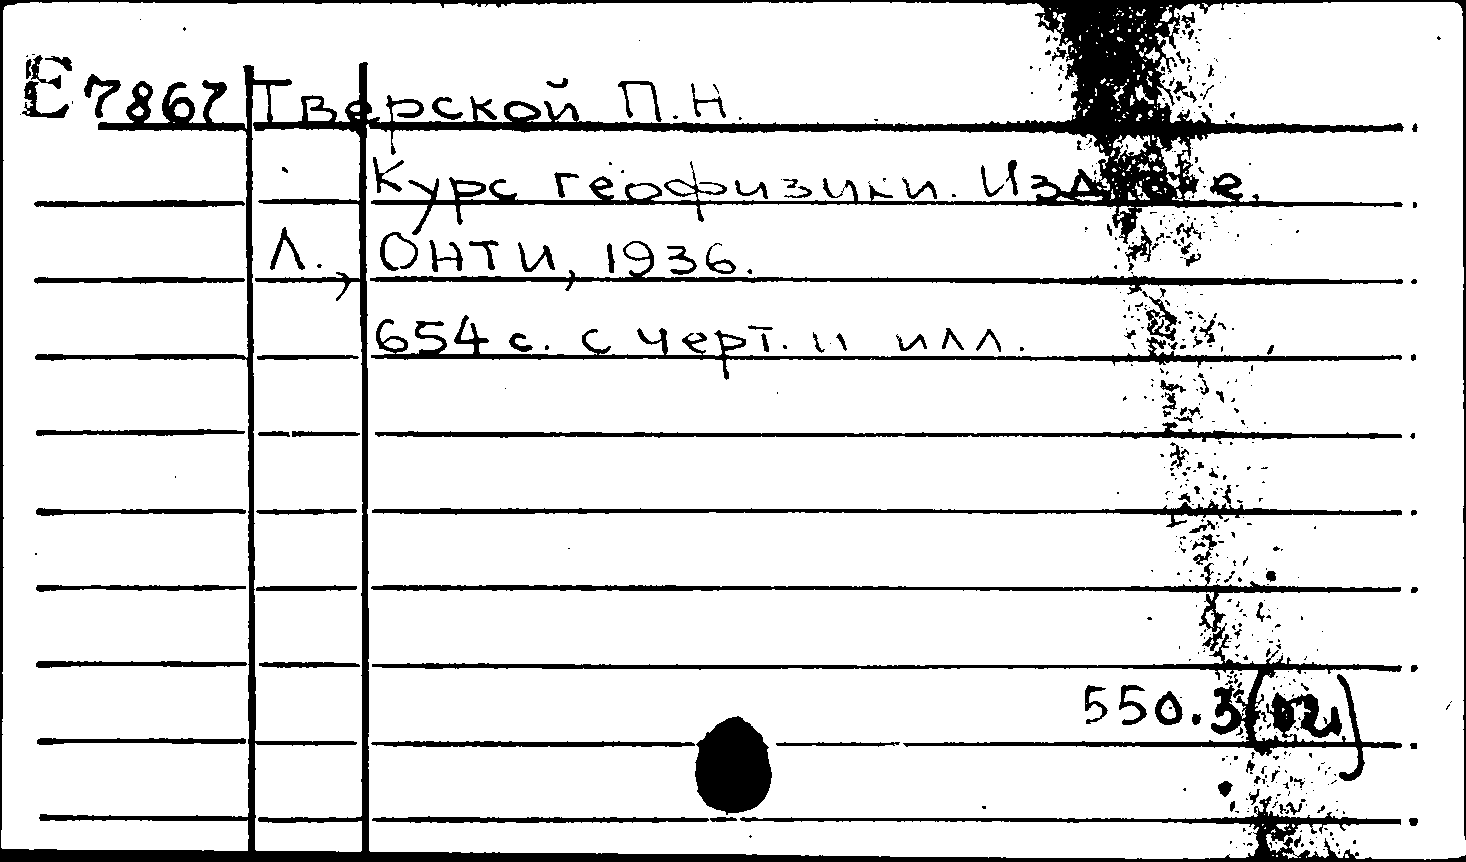 Е 7867 Тверской П.Н.
Курс геофизики. Изд. е.
Л., ОНТИ, 1936.
654 с. с черт. и илл.
550.3(02)